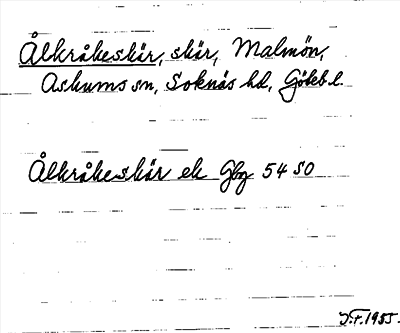 Ålkråkeskär, skär, Malmön,
Askums sn, Soknäs hd, Göteb l.
Ålkråkeskär ek Gbg 54 SO
1955.